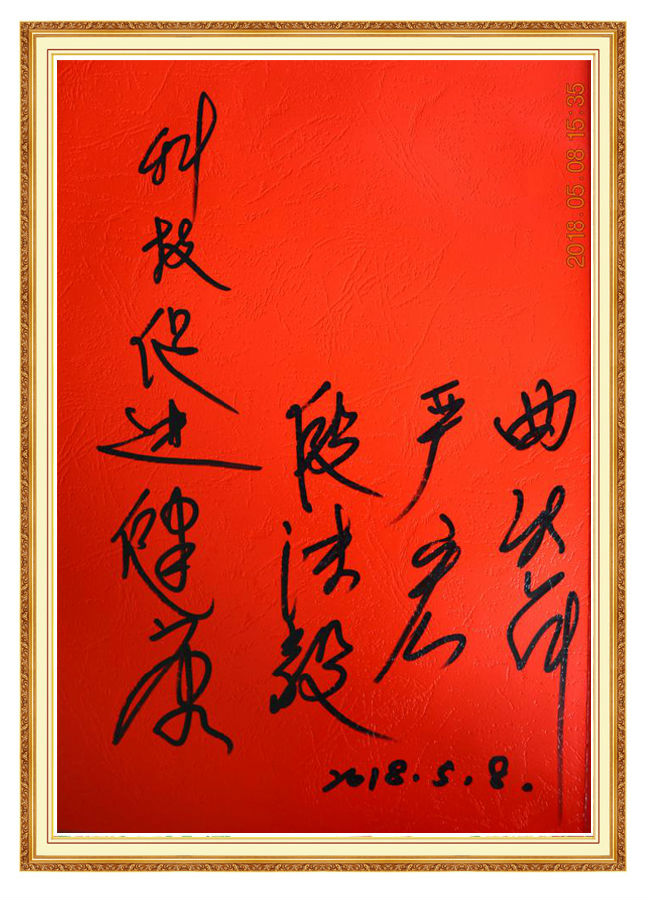 科技促进健康
严宏
2018.5.8.
2018.05.08 15:35